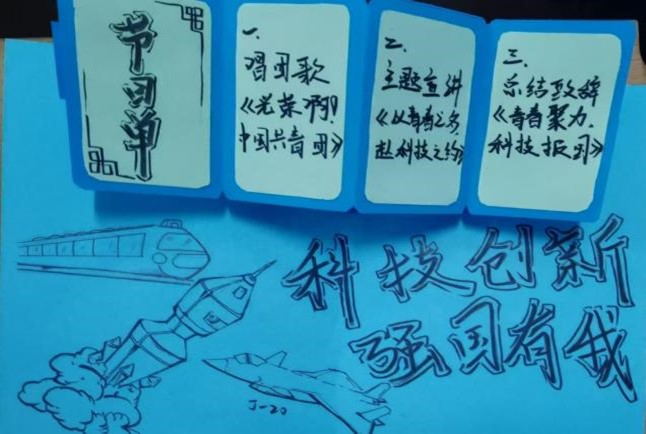 节目单
一、
唱团歌
《光荣啊!
中国共青团》
二、
主题宣讲
《以青春之名,
赴科技之约》
三、
总结致辞
《青春聚力,
科技报国》
科技创新
强国有我
J-20